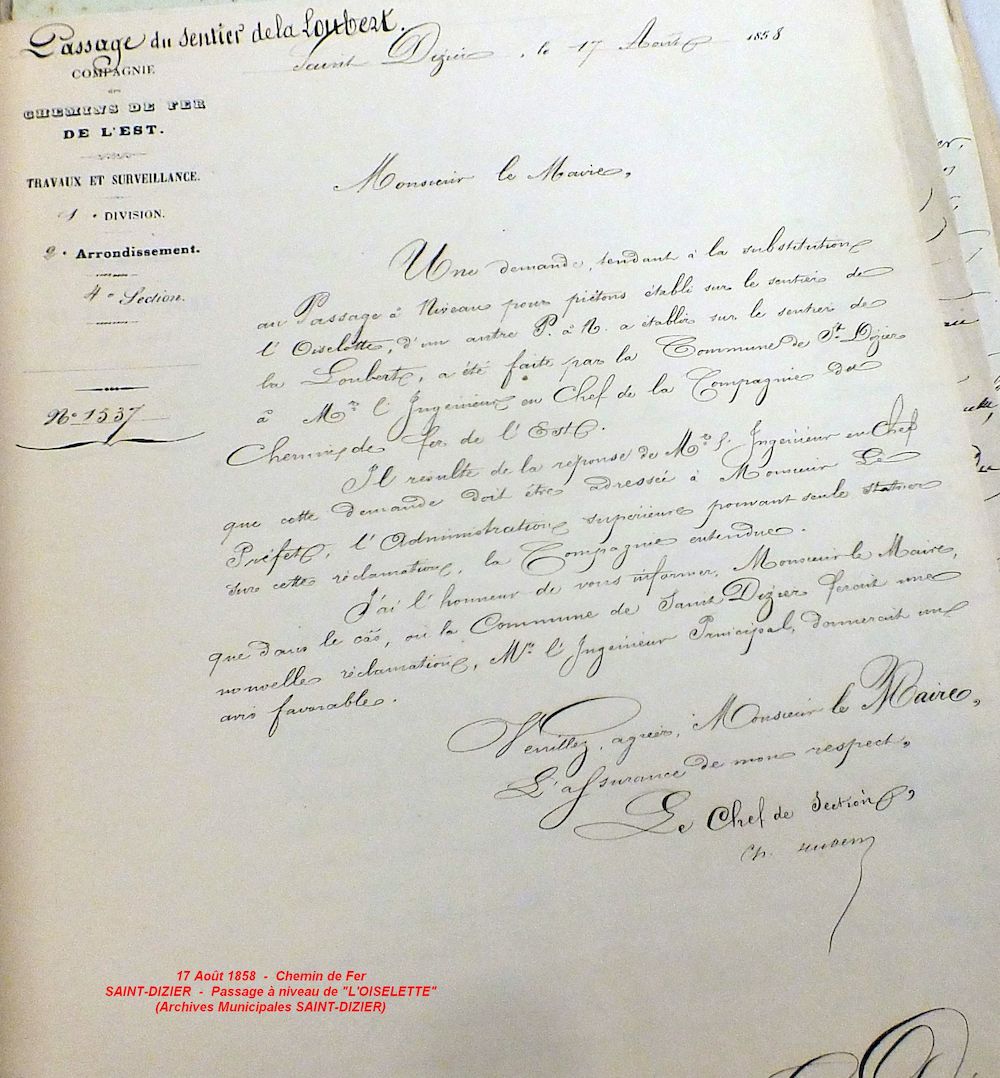 Passage du Sentier de la Loubert.
COMPAGNIE
des
CHEMINS DE FER
DE L'EST.
TRAVAUX ET SURVEILLANCE.
1e DIVISION.
2e Arrondissement.
4e Section.
No 1337
Saint Dizier, le 17 Août 1858
Monsieur le Maire,
Une demande, tendant à la substitution
au Passage à Niveau pour piétons établi sur le sentier de
l'Oiselotte, d'un autre P. à N. a établir sur le sentier de
la Loubert, a été faite par la Commune de St Dizier
à Mr l'Ingénieur en Chef de la Compagnie des
Chemins de fer de l'Est.
Il résulte de la réponse de Mr l'Ingénieur en Chef
que cette demande doit être adressée à Monsieur Le
Préfet, l'Administration supérieure pouvant seule statuer
sur cette réclamation, la Compagnie entendue.
J'ai l'honneur de vous informer, Monsieur le Maire,
que dans le cas, où la Commune de Saint Dizier ferait une
nouvelle réclamation, Mr l'Ingénieur Principal, donnerait un
avis favorable.
Veuillez, agréer, Monsieur le Maire,
L'assurance de mon respect,
Le Chef de Section,
Ch.
17 Août 1858 - Chemin de Fer
SAINT-DIZIER - Passage à niveau de "L'OISELETTE"
(Archives Municipales SAINT-DIZIER)